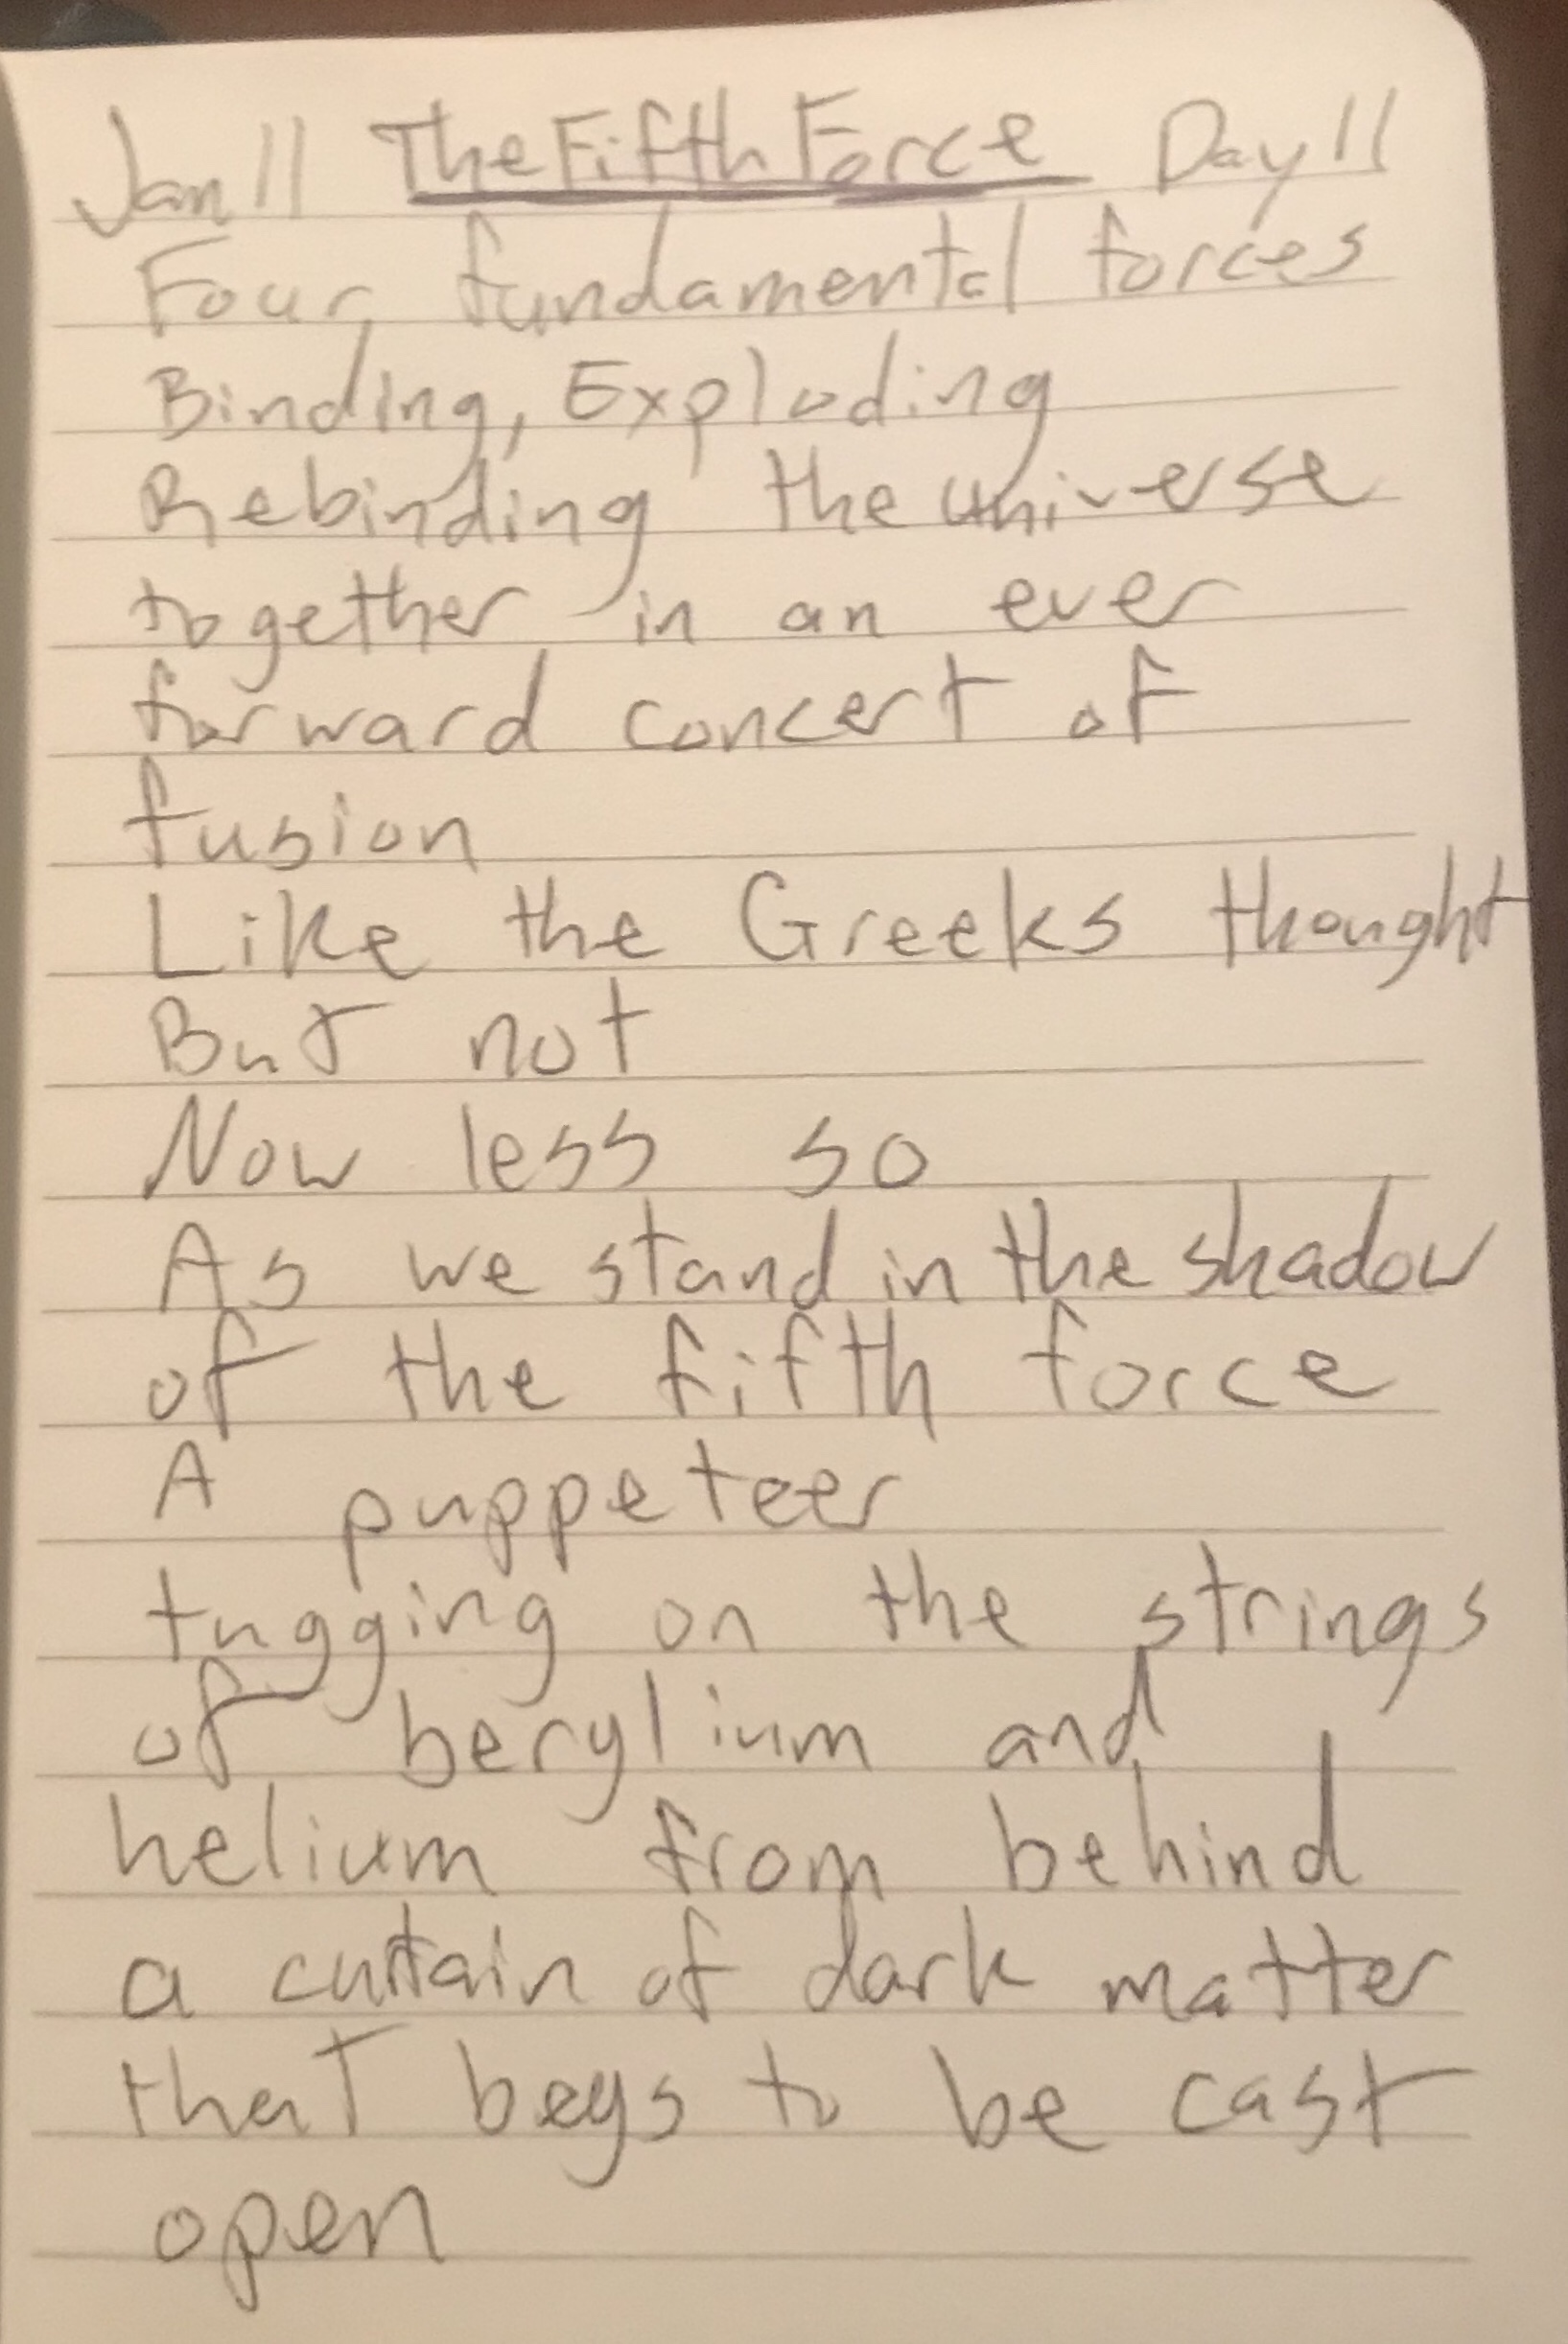 Jan 11 The Fifth Force Day 11
Four fundamental forces
Binding, Exploding
Rebinding the universe
together in an ever
forward concert of
fusion
Like the Greeks thought
But not
Now less so
As we stand in the shadow
of the fifth force
A puppeteer
tugging on the strings
of berylium and
helium from behind
a curtain of dark matter
that begs to be cast
open